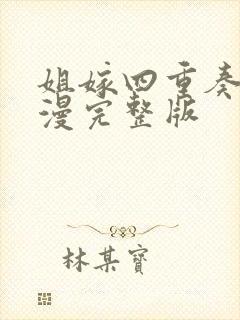 姐嫁四重奏
漫完整版
林某寶